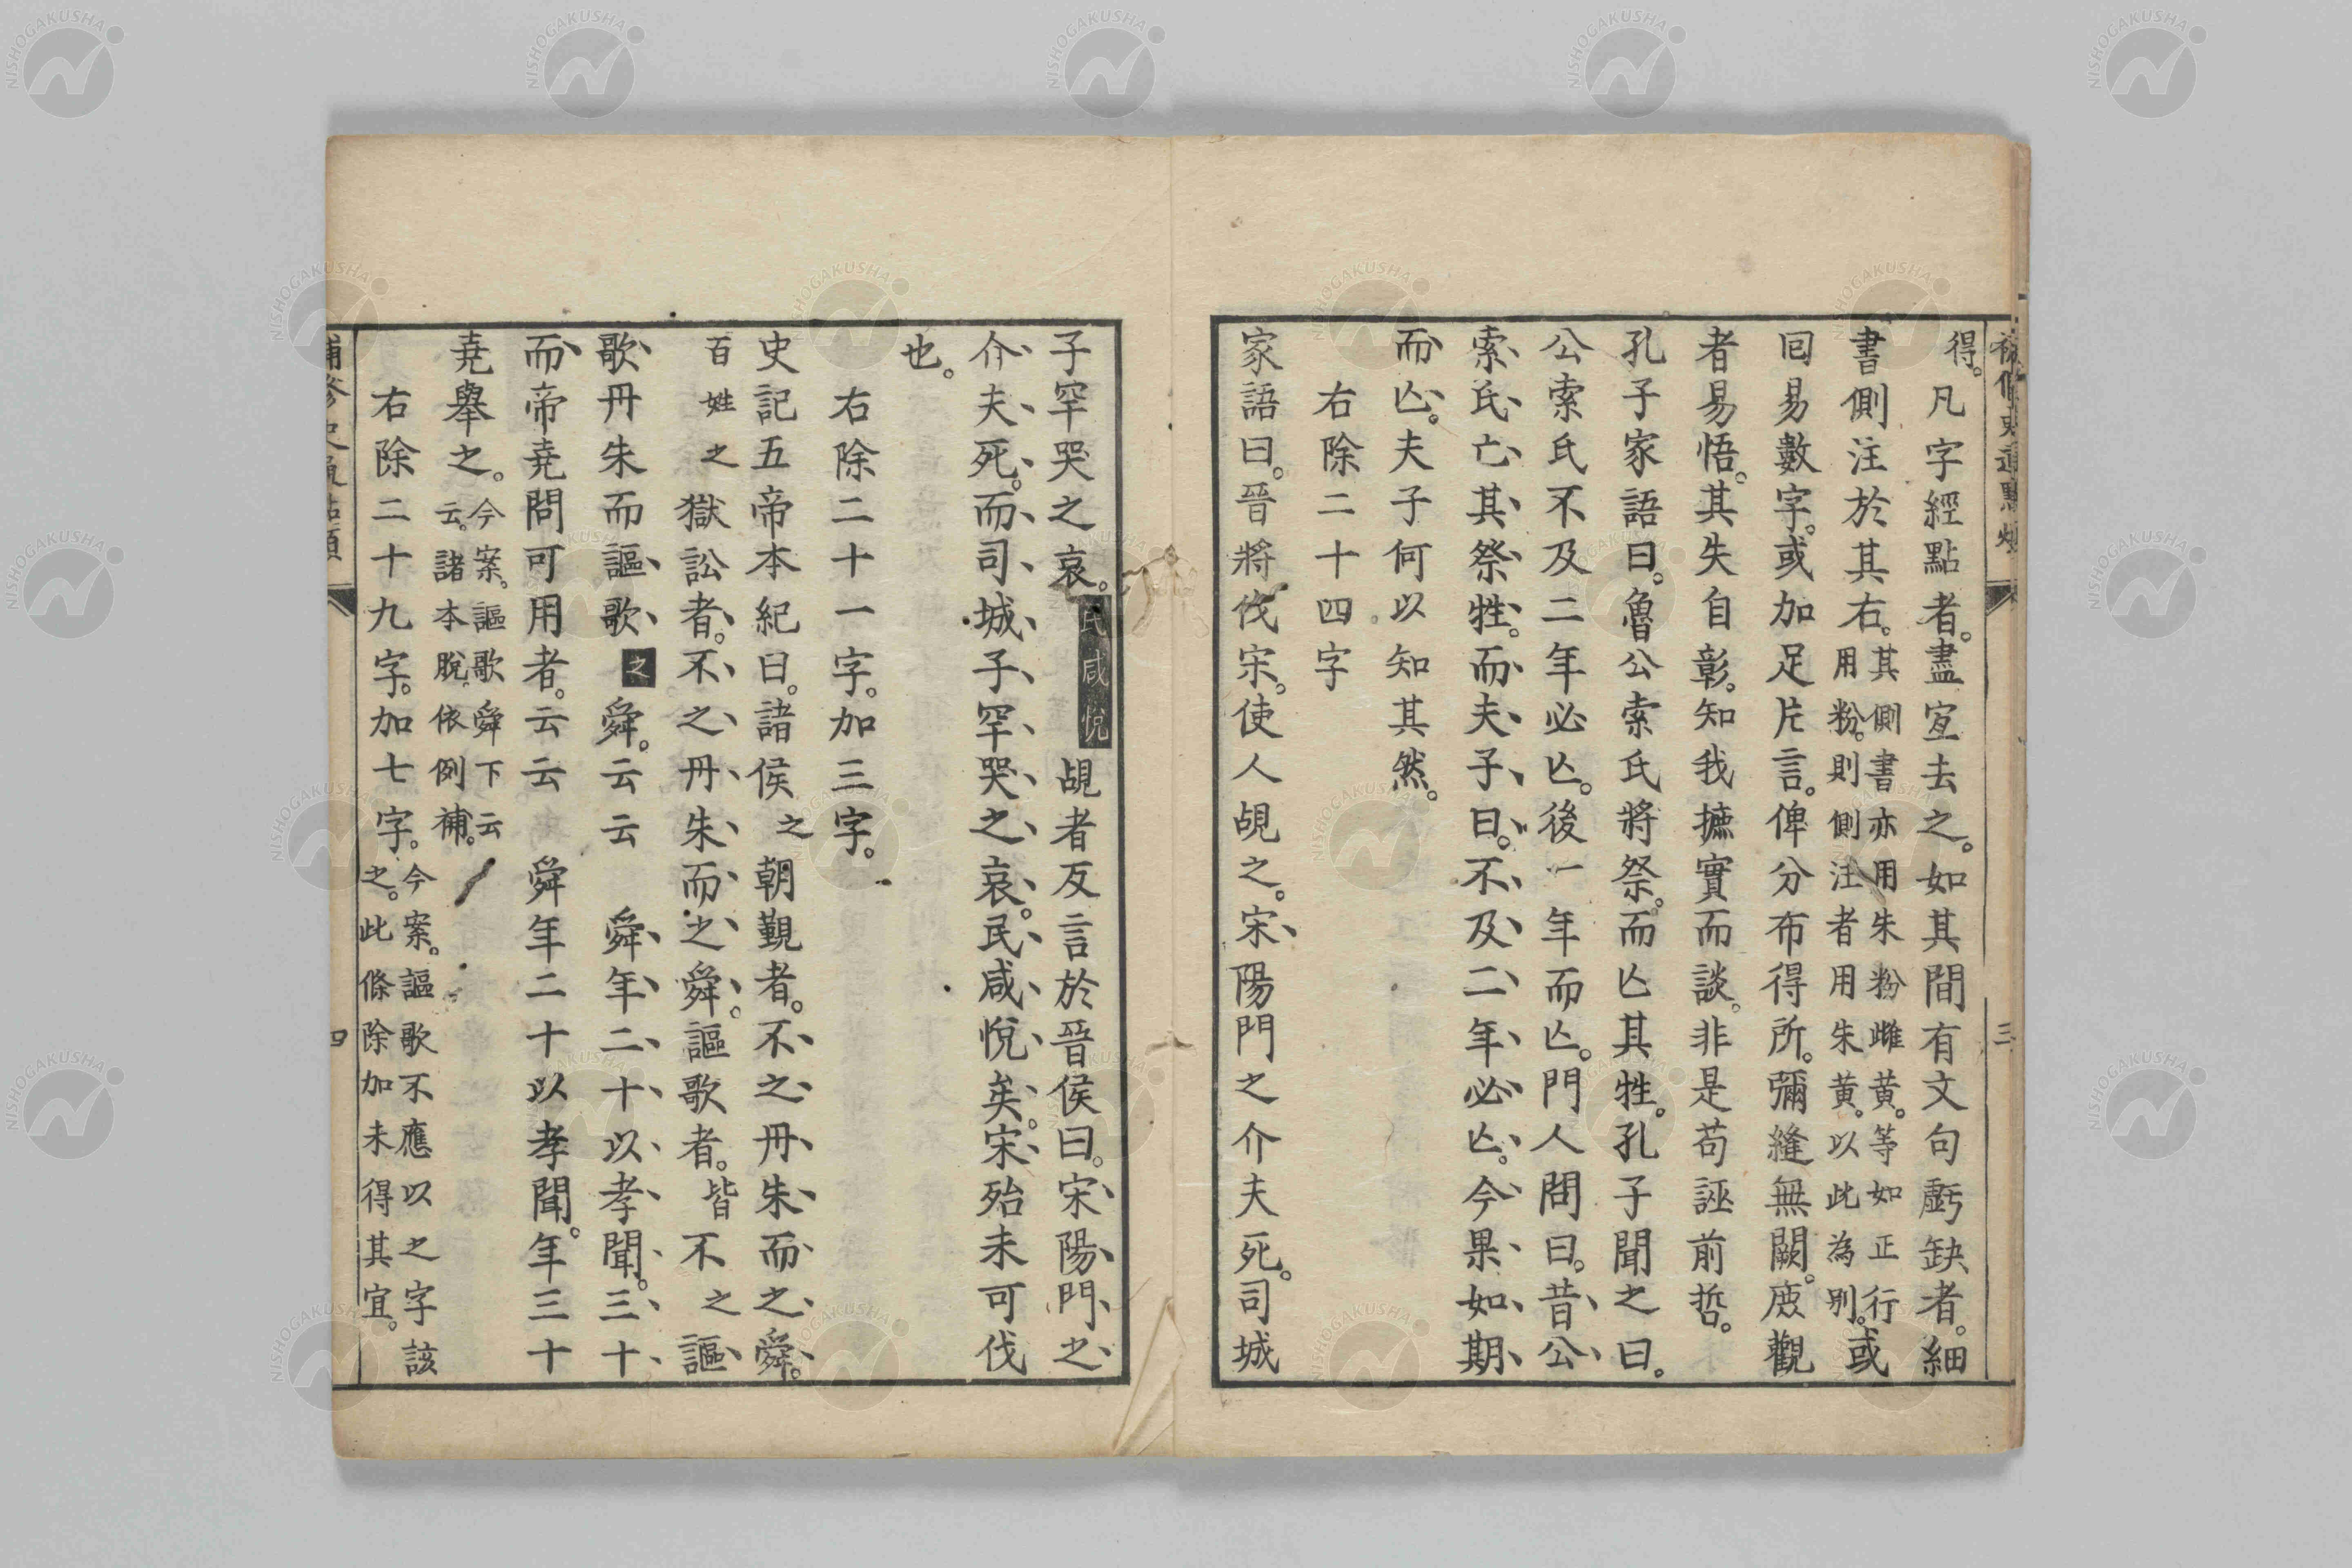 補修史通點煩
三
得。凡字經點者。盡宜去之。如其間有文句虧缺者。細
書側注於其右。其側書亦用朱粉雌黃。等如正行用粉。則側注者用朱黃。以此為別。或
回易數字。或加足片言。俾分布得所。彌縫無闕。庶觀
者易悟。其失自彰。知我摭實而談。非是苟誣前哲。
孔子家語曰。魯公索氏將祭。而亾其牲。孔子聞之曰。
公索氏不及二年必亾。後一年而亾。門人問曰。昔公
索氏亡其祭牲。而夫子曰。不及二年必亾。今果如期
而亾。夫子何以知其然。
右除二十四字
家語曰。晉將伐宋。使人覘之。宋陽門之介夫死。司城
子罕哭之哀。民咸悅覘者反言於晉侯曰。宋陽門之
介夫死。而司城子罕哭之哀。民咸悅矣。宋殆未可伐
也。
右除二十一字。加三字。
史記五帝本紀曰。諸侯之朝覲者。不之丹朱而之舜。
百姓之獄訟者。不之丹朱而之舜。謳歌者。皆不之謳
歌丹朱而謳歌之舜。云云 舜年二十以孝聞。三十
而帝堯問可用者。云云 舜年二十以孝聞。年三十
堯舉之。今案。謳歌舜下云云。諸本脫。依例補。
右除二十九字。加七字。今案。謳歌不應以之字該之。此條除加未得其宜。
四
NISHOGAKUSHA